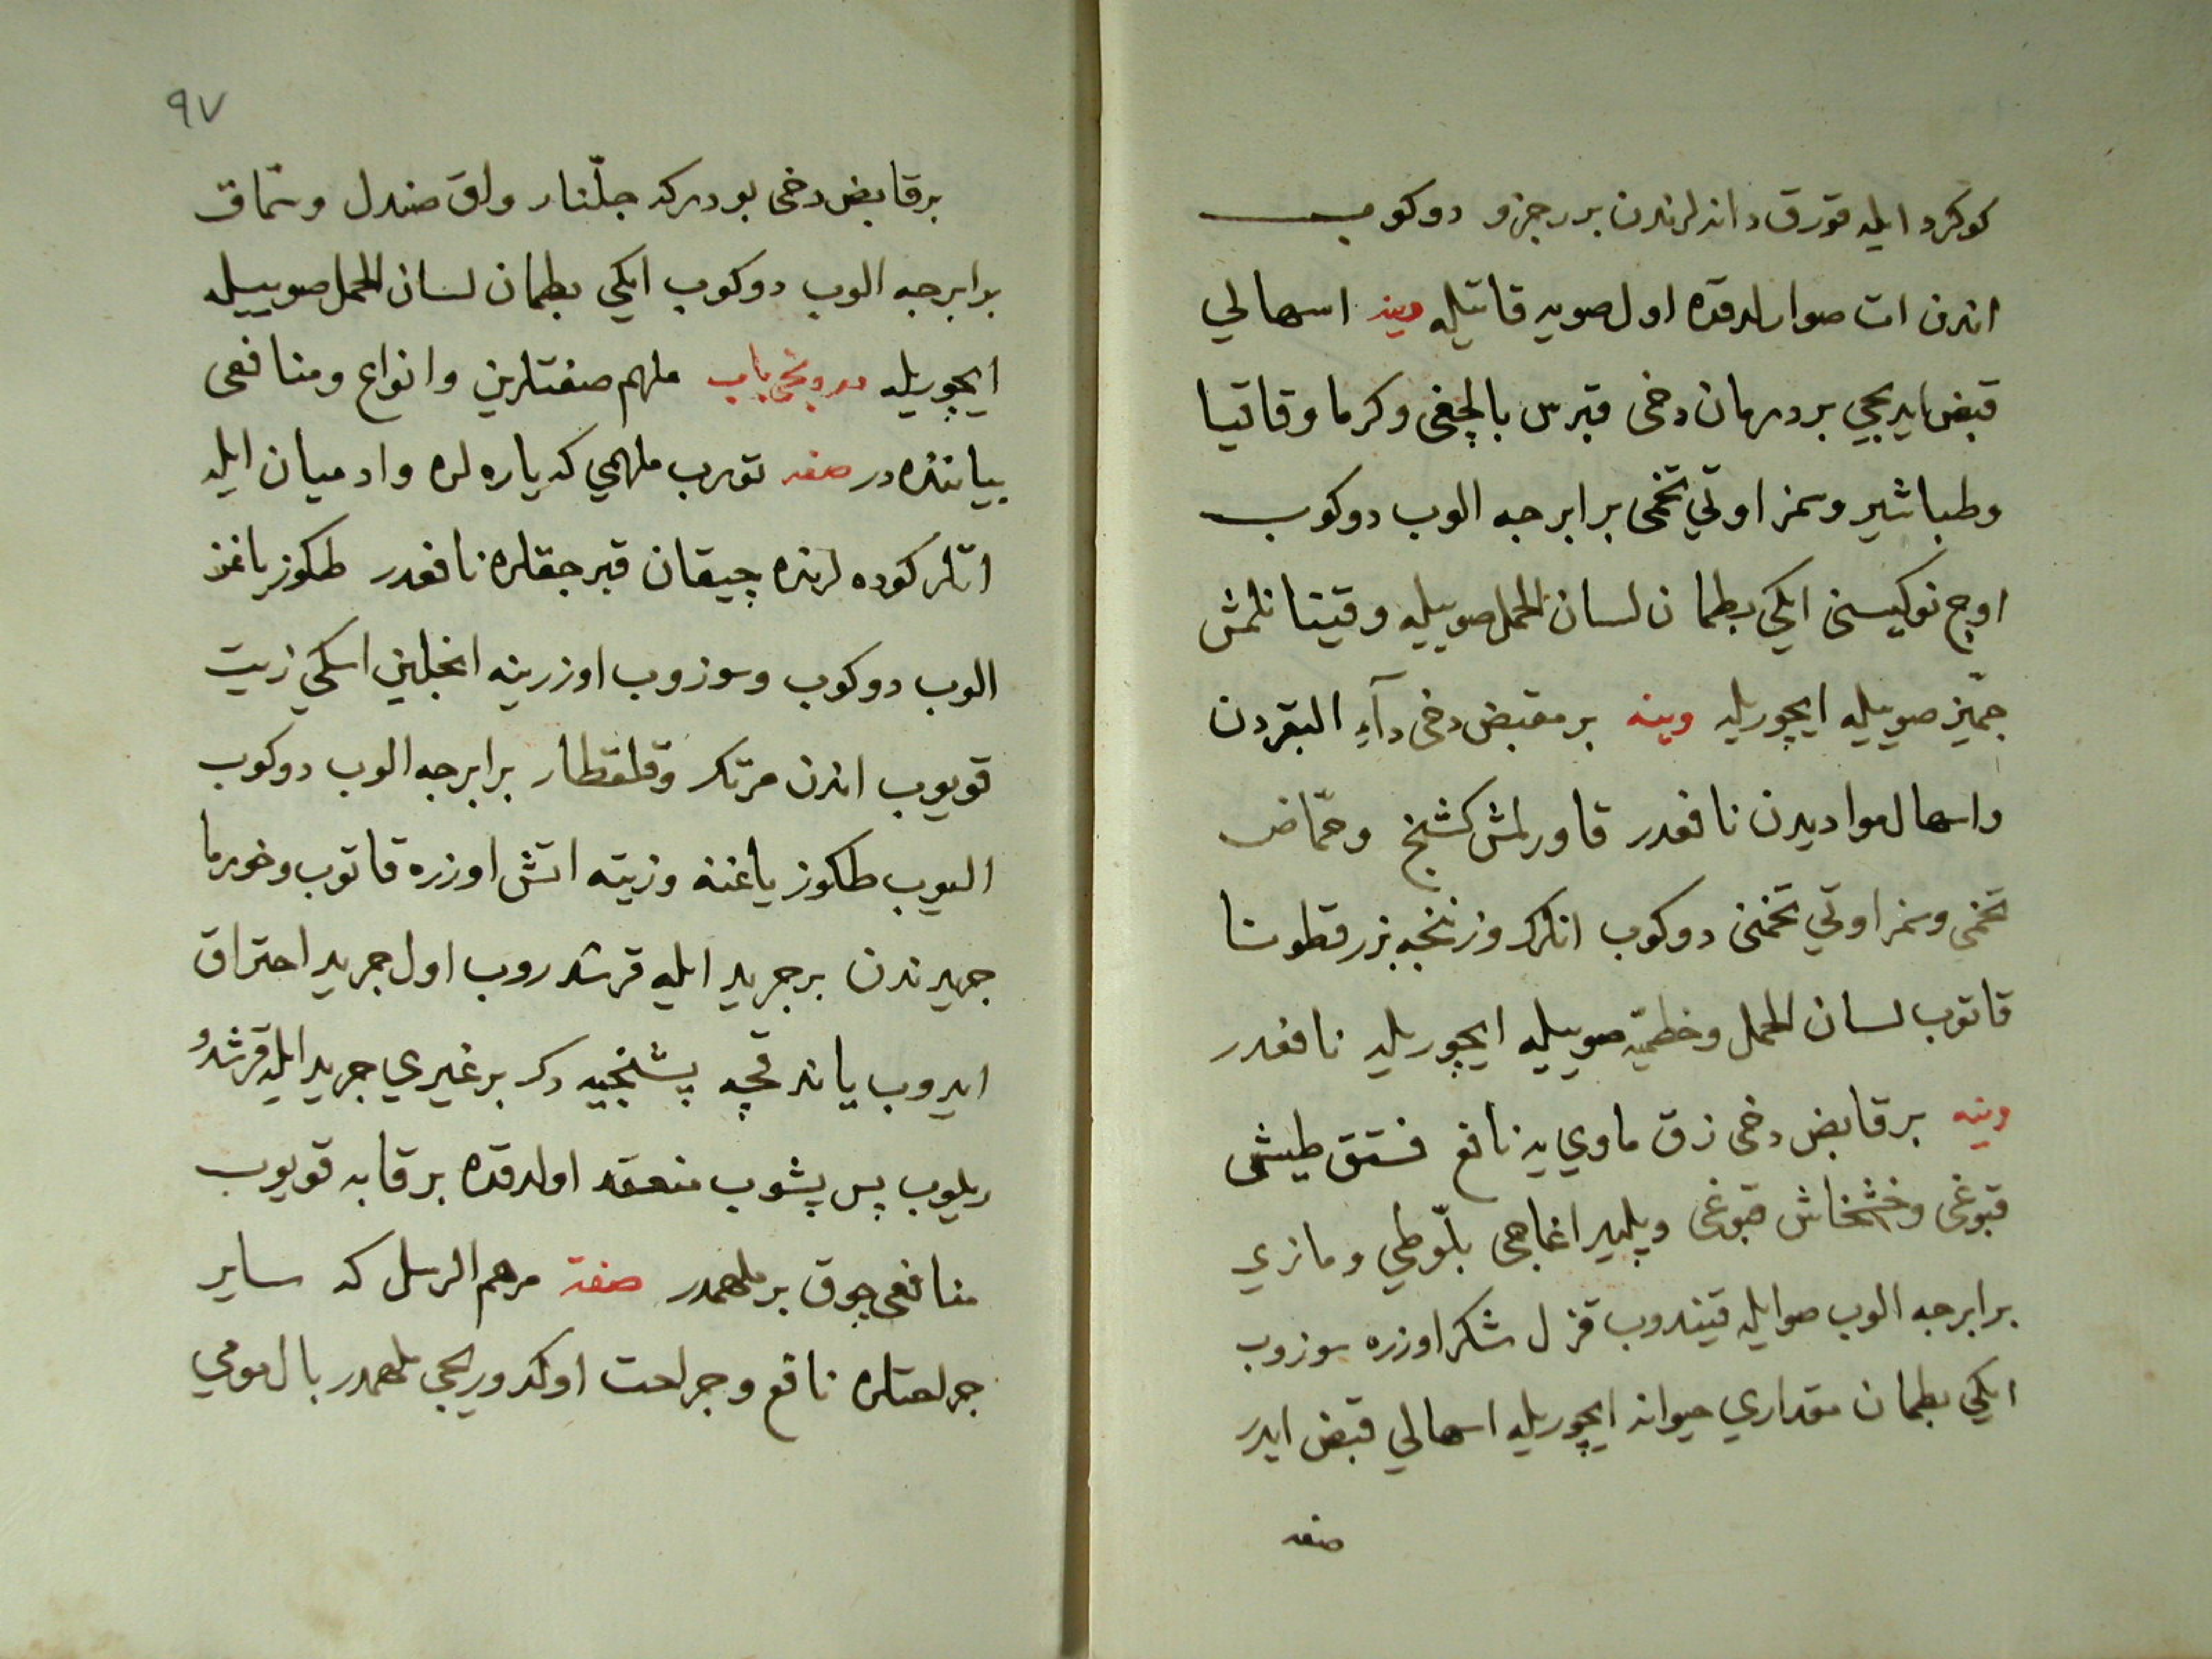 كوكرد ايله قورق دانه لرندن بر جزو دوكوب
اندن ات صوارلدقده اول صويه قاتيله وينه اسهالي
قبض ايديجي بر درمان دخى قبرس بالچغى وكرما وقاقيا
وطباشير وسمز اوتي تخمى برابرجه الوب دوكوب
اوچ نوكيسنى ايكي بطمان لسان الحمل صوييله وقينانلمش
جميز صوييله ايچوريله وينه بر مقبض دخى داء البقردن
واسهال مواديدن نافعدر قاورلمش كشنج وحماض
تخمى وسمز اوتي تخمنى دوكوب انلرك وزننجه بزر قطونا
قاتوب لسان الحمل وخطميه صوييله ايچوريله نافعدر
وينه بر قابض دخى زق ماوي يه نافع فستق طيشى
قبوغى وخشخاش قبوغى وپلير اغاجى بلوطي ومازي
برابرجه الوب صوايله قيندوب قزل شكر اوزره سوزوب
ايكي بطمان مقداري حيوانه ايچوريله اسهالي قبض ايدر
صفه
٩٧
بر قابض دخى بودركه جلنار واق صندل وسماق
برابرجه الوب دوكوب ايكي بطمان لسان الحمل صوييله
ايچوريله باب ملهم صفتلرين وانواع ومنافعى
بياننده در صفه ملهمي كه ياره لره وادميان ايله
اتلر كوده لرنده چيقان قبرجقلره نافعدر طكوز ياغن
الوب دوكوب وسوزوب اوزرينه انجلين اسكي زيت
قويوب اندن مرتك وقلقطار برابرجه الوب دوكوب
اليوب طكوز ياغنه وزيته اتش اوزره قاتوب وخورما
جريدندن بر جريد ايله قرشدروب اول جريد احتراق
ايدوب ياندقچه پشنجيه دك بر غيري جريد ايله قرشد
ريلوب پس پشوب منعقد اولدقده بر قابه قويوب
منافعى چوق بر ملهمدر صفة مرهم الرسل كه ساير
جراحتلره نافع وجراحت اوكدوريجى ملهمدر بال مومي